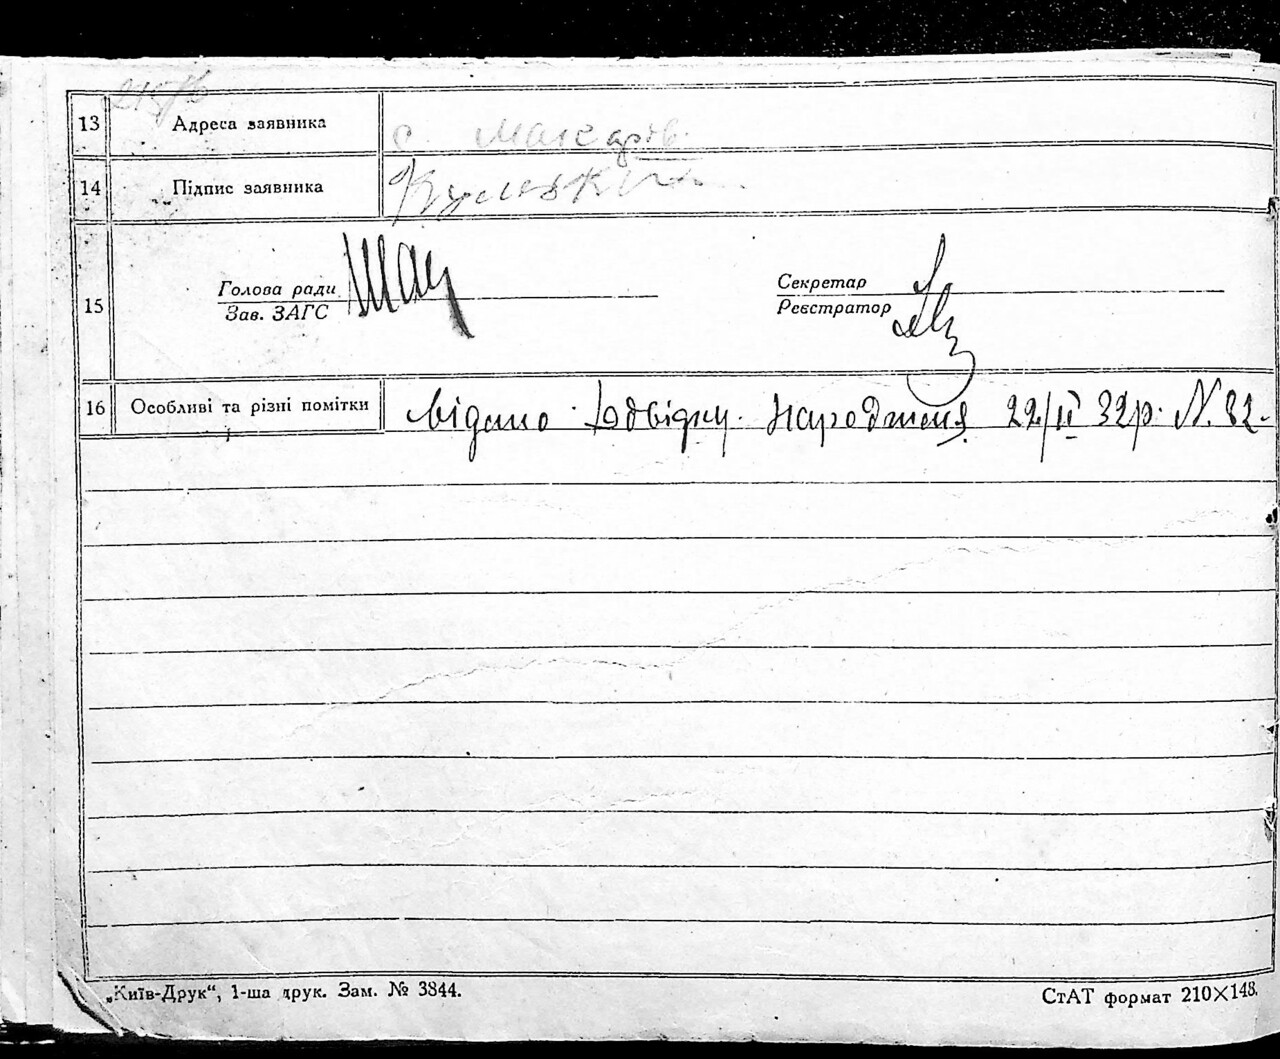 13 Адреса заявника с. Макарів.
14 Підпис заявника
15 Голова ради Секретар
Зав. ЗАГС Реєстратор
16 Особливі та різні помітки Відано Довідку. Народженя 22/II 32р. N. 82.
„Київ-Друк“, 1-ша друк. Зам. № 3844. СтАТ формат 210×148.